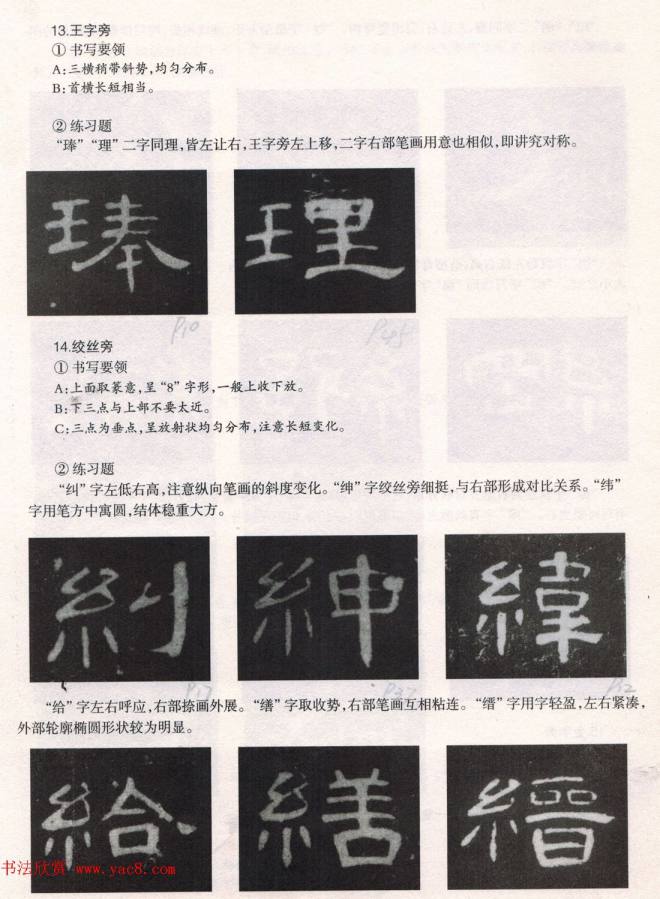 13.王字旁
① 书写要领
A:三横稍带斜势,均匀分布。
B:首横长短相当。
② 练习题
“瑧”“理”二字同理,皆左让右,王字旁左上移,二字右部笔画用意也相似,即讲究对称。
瑧 理
P10 P45
14.绞丝旁
① 书写要领
A:上面取篆意,呈“8”字形,一般上收下放。
B:下三点与上部不要太近。
C:三点为垂点,呈放射状均匀分布,注意长短变化。
② 练习题
“纠”字左低右高,注意纵向笔画的斜度变化。“绅”字绞丝旁细挺,与右部形成对比关系。“纬”
字用笔方中寓圆,结体稳重大方。
糾 紳 緯
P17 P37
“给”字左右呼应,右部捺画外展。“缮”字取收势,右部笔画互相粘连。“缙”字用字轻盈,左右紧凑,
外部轮廓椭圆形状较为明显。
給 繕 縉
书法欣赏 www.yac8.com